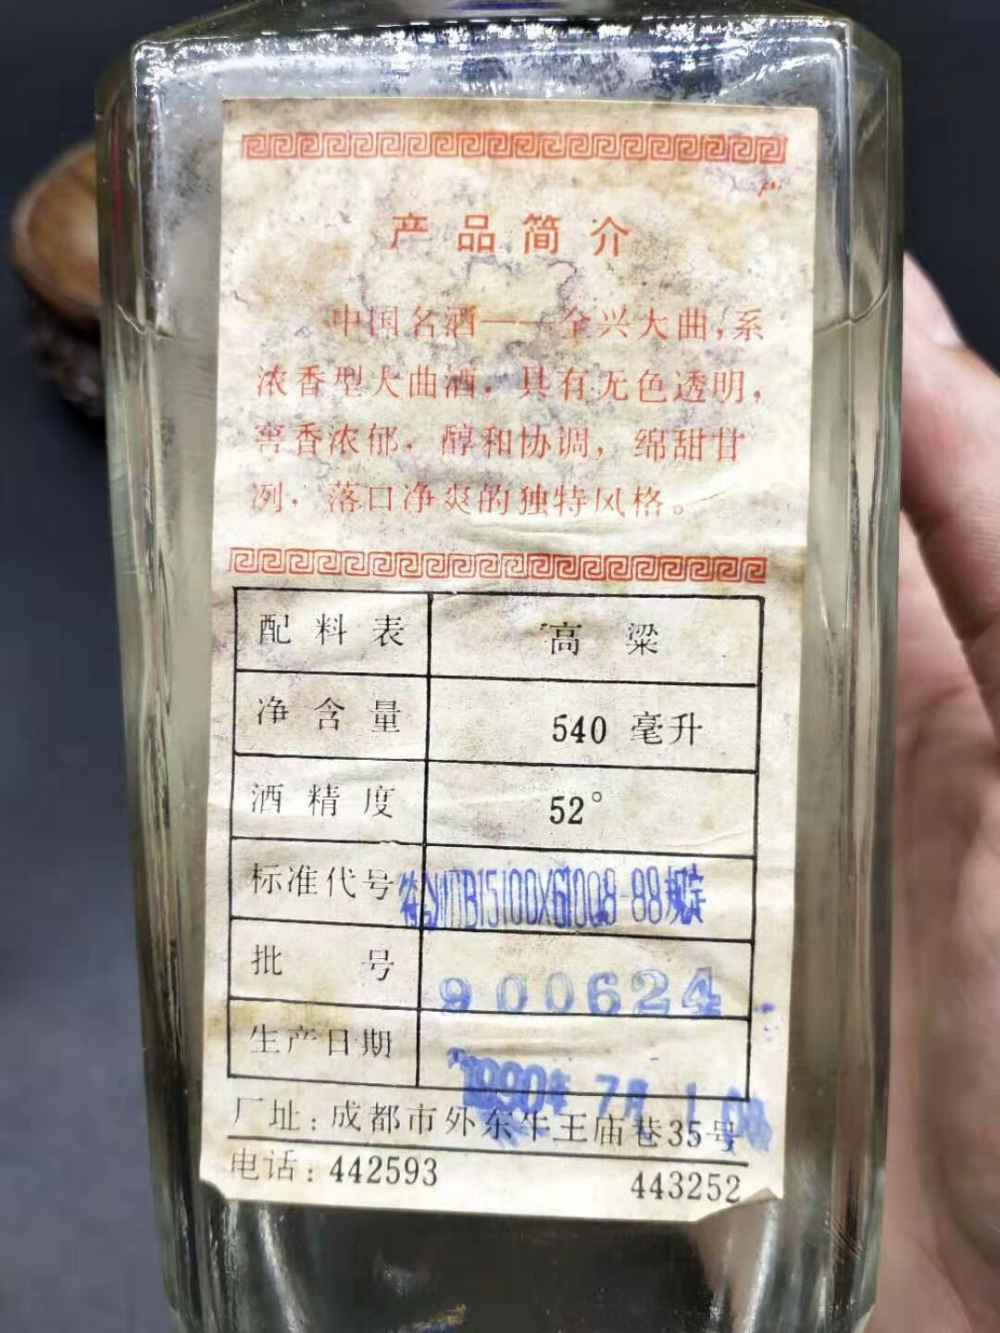 产品简介
中国名酒——全兴大曲,系
浓香型大曲酒，具有无色透明，
窖香浓郁，醇和协调，绵甜甘
冽，落口净爽的独特风格。
配料表 高粱
净含量 540 毫升
酒精度 52°
标准代号 符 规定
批号 900624
生产日期 1990年 7月 1
厂址：成都市外东牛王庙巷35号
电话：442593 443252